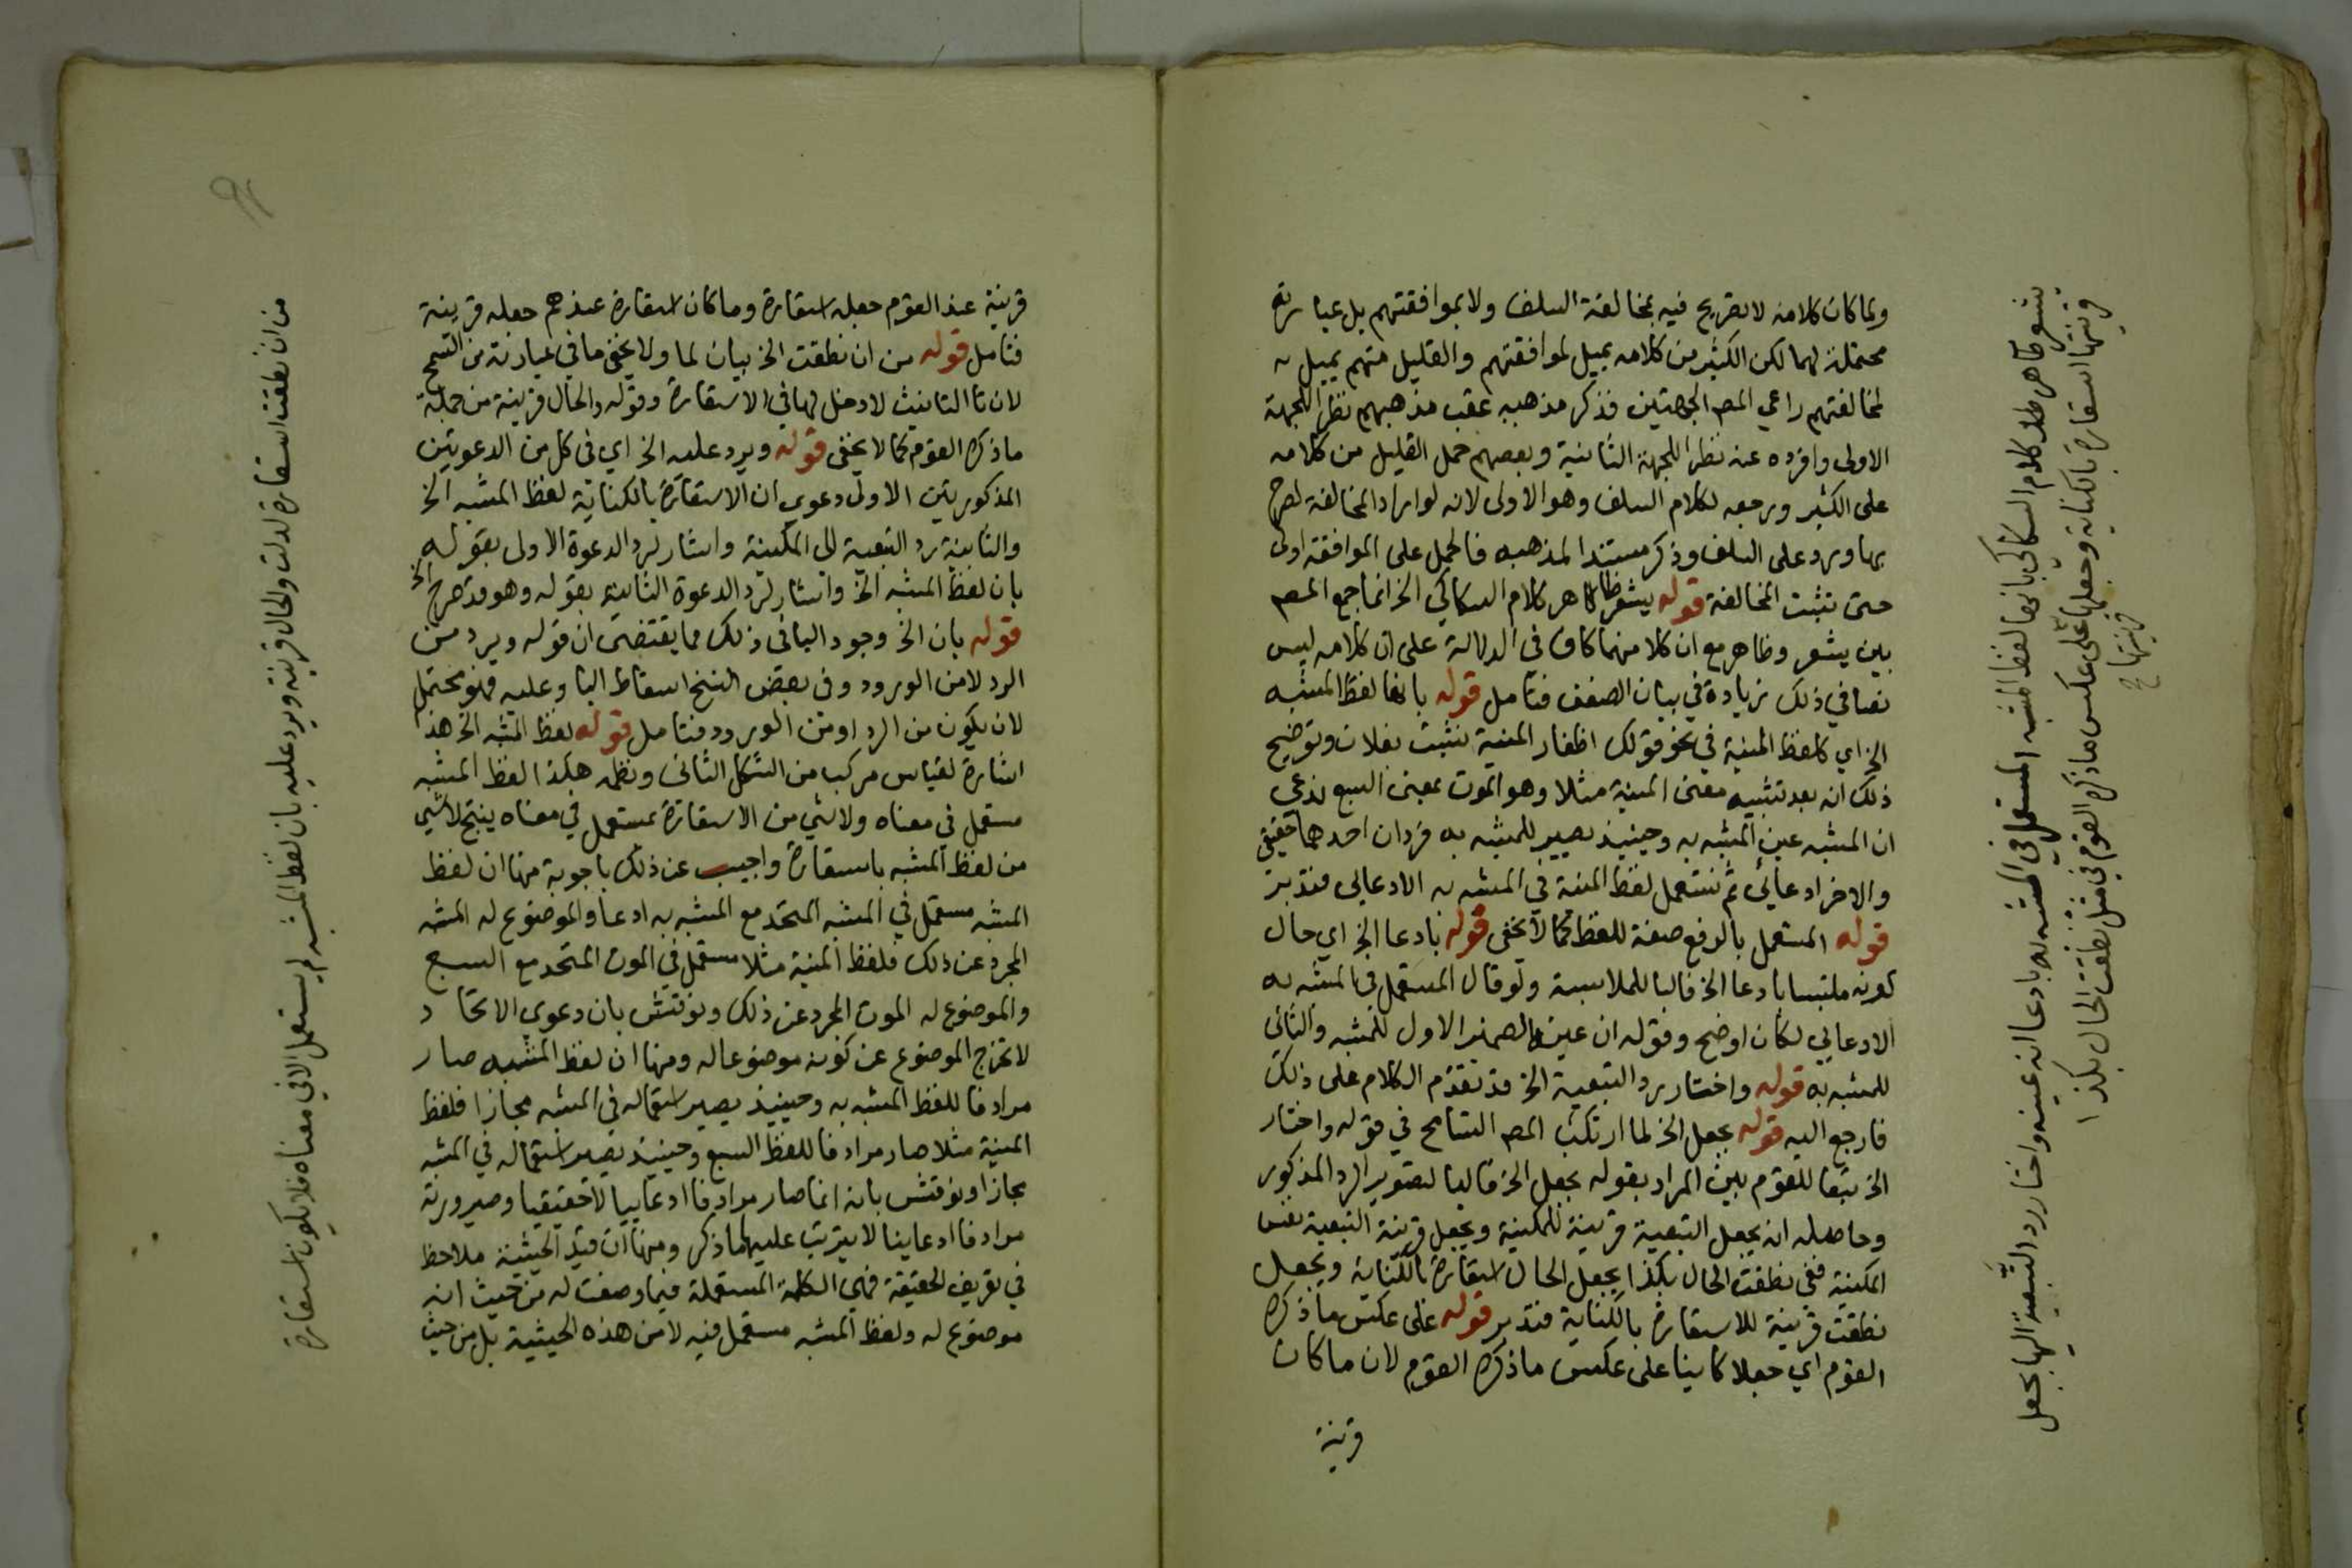 ولما كان كلامه لا تصريح فيه بمخالفة السلف ولا بموافقتهم بل عبارته
محتملة لهما لكن الكثير من كلامه يميل لموافقتهم والقليل منهم يميل
لمخالفتهم راعي المص الجهتين فذكر مذهبه عقب مذهبهم نظرا للجهة
الاولى وافرده عنه نظرا للجهة الثانية وبعضهم حمل القليل من كلامه
على الكثير ورجعه لكلام السلف وهو الاولى لانه لو اراد المخالفة لصرح
بها ورد على السلف وذكر مستندا لمذهبه فالحمل على الموافقة اولى
حتى تثبت المخالفة قوله يشعر ظاهر كلام السكاكي الخ انما جمع المص
بين يشعر وظاهر مع ان كلا منهما كاف في الدلالة على ان كلامه ليس
نصا في ذلك زيادة في بيان الضعف فتامل قوله بانها لفظ المشبه
الخ اي كلفظ المنية في نحو قولك اظفار المنية نشبت بفلان وتوضيح
ذلك انه بعد تشبيه معنى المنية مثلا وهو الموت بمعنى السبع ندعي
ان المشبه عين المشبه به وحينيذ يصير للمشبه به فردان احدهما حقيقي
والاخر ادعائي ثم نستعمل لفظ المنية في المشبه به الادعائي فتدبر
قوله المستعمل بالرفع صفة للفظ كما لا يخفى قوله بادعا الخ اي حال
كونه ملتبسا بادعا الخ فالبا للملابسة ولو قال المستعمل في المشبه به
الادعايي لكان اوضح وقوله ان عينه الضمير الاول للمشبه والثاني
للمشبه به قوله واختار رد التبعية الخ قد تقدم الكلام على ذلك
فارجع اليه قوله بجعل الخ لما ارتكب المص التسامح في قوله واختار
الخ تبعا للقوم بين المراد بقوله بجعل الخ فالبا لتصوير الرد المذكور
وحاصله انه يجعل التبعية قرينة للمكنية ويجعل قرينة التبعية نفس
المكنية ففي نطقت الحال بكذا يجعل الحال استعارة بالكناية ويجعل
نطقت قرينة للاستعارة بالكناية فتدبر قوله على عكس ما ذكره
القوم اي جعلا كاينا على عكس ما ذكره القوم لان ما كان
قرينة
يشعر ظاهر كلام السكاكي بانها لفظ المشبه المستعمل في المشبه به بادعا انه عينه واختار رد التبعية اليها بجعل
قرينتها استعارة بالكناية وجعلها على عكس ما ذكره القوم في مثل نطقت الحال بكذا
قرينتها
قرينة عند القوم جعله استعارة وما كان استعارة عندهم جعله قرينة
فتامل قوله من ان نطقت الخ بيان لما ولا يخفى ما في عبارته من التسمح
لان تا التانيث لا دخل لها في الاستعارة وقوله والحال قرينة من جملة
ما ذكره القوم كما لا يخفى قوله ويرد عليه الخ اي في كل من الدعوتين
المذكورتين الاولى دعوي ان الاستعارة بالكناية لفظ المشبه الخ
والثانية رد التبعية الى المكنية واشار لرد الدعوة الاولى بقوله
بان لفظ المشبه الخ واشار لرد الدعوة الثانية بقوله وهو قد صرح الخ
قوله بان الخ وجود البا في ذلك مما يقتضي ان قوله ويرد من
الرد لا من الورود وفي بعض النسخ اسقاط البا وعليه فهو محتمل
لان يكون من الرد او من الورود فتامل قوله لفظ المشبه الخ هذا
اشارة لقياس مركب من الشكل الثاني ونظمه هكذا لفظ المشبه
مستعمل في معناه ولا شي من الاستعارة بمستعمل في معناه ينتج لا شي
من لفظ المشبه باستعارة واجيب عن ذلك باجوبة منها ان لفظ
المشبه مستعمل في المشبه المتحد مع المشبه به ادعا والموضوع له المشبه
المجرد عن ذلك فلفظ المنية مثلا مستعمل في الموت المتحد مع السبع
والموضوع له الموت المجرد عن ذلك ونوقش بان دعوي الاتحاد
لا تخرج الموضوع عن كونه موضوعا له ومنها ان لفظ المشبه صار
مرادفا للفظ المشبه به وحينيذ يصير استعماله في المشبه مجازا فلفظ
المنية مثلا صار مرادفا للفظ السبع وحينيذ يصير استعماله في المشبه
مجازا ونوقش بانه انما صار مرادفا ادعاييا لا حقيقيا وصيرورته
مرادفا ادعاييا لا يترتب عليها ما ذكر ومنها ان قيد الحيثية ملاحظ
في تعريف الحقيقة فهي الكلمة المستعملة فيما وضعت له من حيث انه
موضوع له ولفظ المشبه مستعمل فيه لا من هذه الحيثية بل من حيث
من ان نطقت استعارة لدلت والحال قرينة ويرد عليه بان لفظ المشبه لم يستعمل الا في معناه فلا يكون استعارة